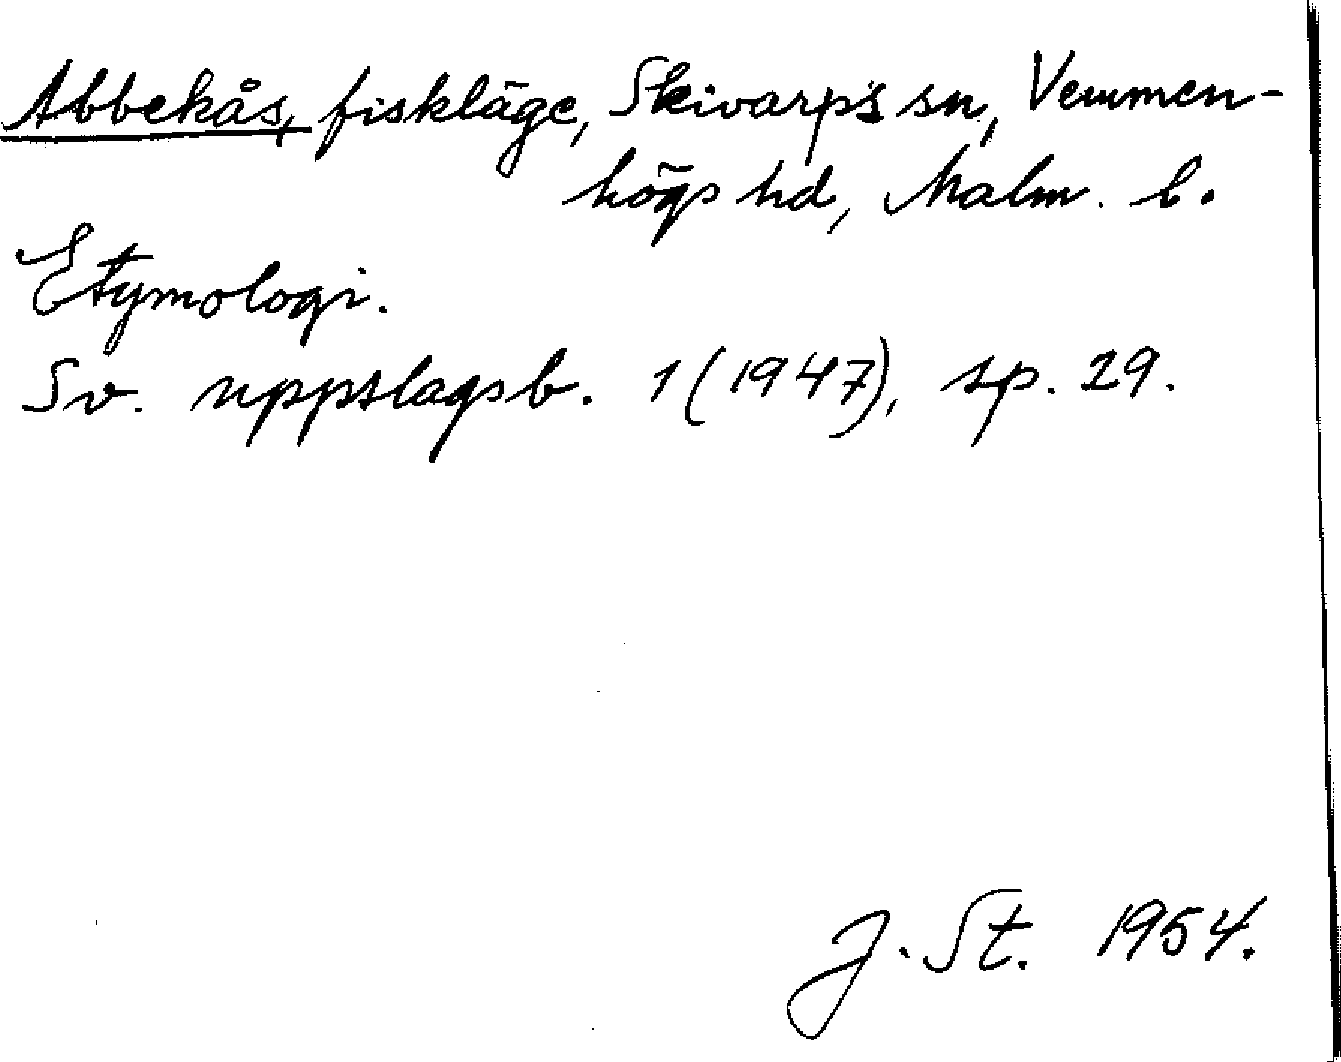 Abbekås, fiskläge, Skivarps sn, Vemmen-
högs hd, Malm. l.
Etymologi.
Sv. uppslagsb. 1 (1947), sp. 29.
J. St. 1954.